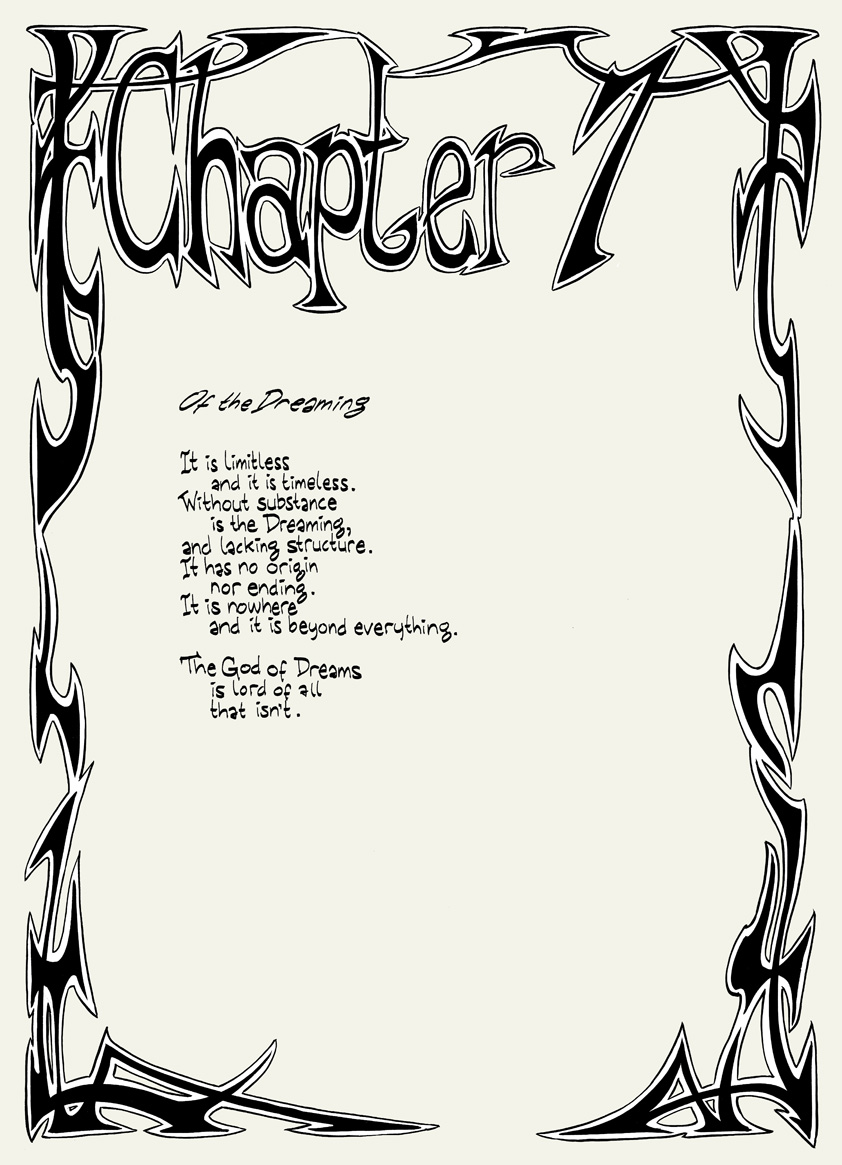 Chapter 1
Of the Dreaming
It is limitless
and it is timeless.
Without substance
is the Dreaming,
and lacking structure.
It has no origin
nor ending.
It is nowhere
and it is beyond everything.
The God of Dreams
is lord of all
that isn't.